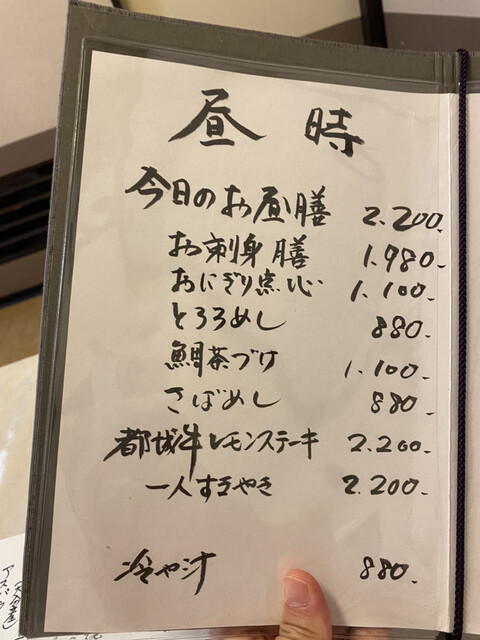 昼時
今日のお昼膳 2.200.
お刺身膳 1.980-
おにぎり点心 1.100-
とろろめし 880-
鯛茶づけ 1.100-
さばめし 880-
都城牛レモンステーキ 2.200-
一人すきやき 2.200-
冷や汁 880-